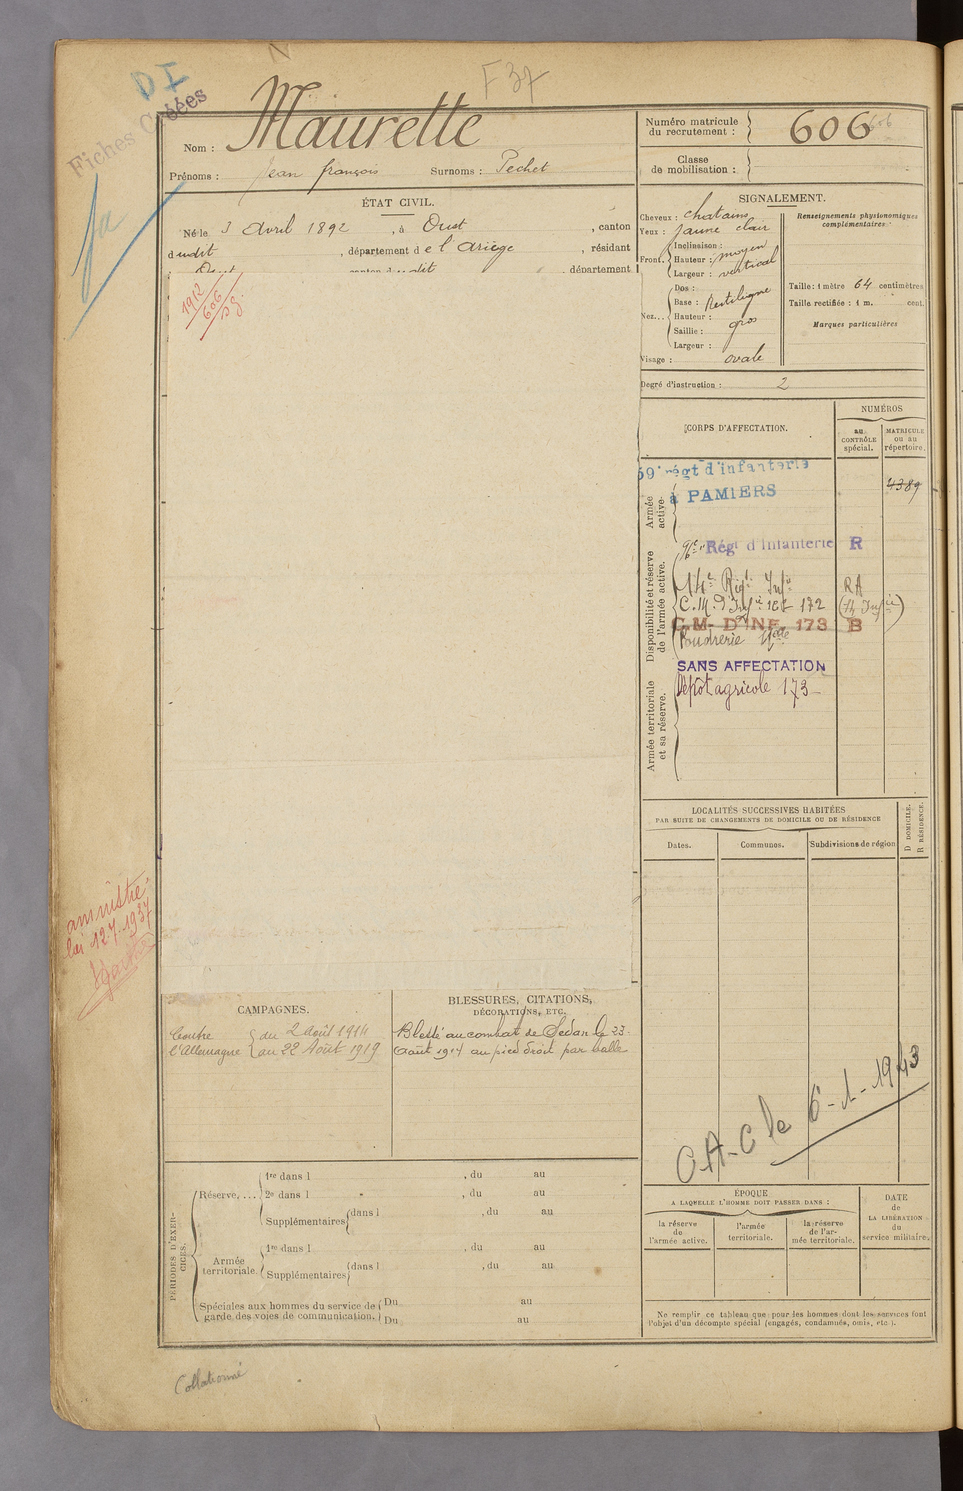 DI
Fiches Créées
F 37
Nom : Maurette
Prénoms : Jean françois Surnoms : Pechet
Numéro matricule du recrutement : 606
606
Classe de mobilisation :
ÉTAT CIVIL.
Né le 3 Avril 1892, à Oust, canton
dudit, département de l'Ariège, résidant
canton dudit, département
1912
606
SIGNALEMENT.
Cheveux : chatains
Yeux : jaune clair
Front. Inclinaison :
Hauteur : moyen
Largeur : vertical
Nez... Dos :
Base : Rectiligne
Hauteur :
Saillie : gros
Largeur :
Visage : ovale
Renseignements physionomiques complémentaires :
Taille : 1 mètre 64 centimètres
Taille rectifiée : 1 m. cent.
Marques particulières
Degré d'instruction : 2
CORPS D'AFFECTATION.
NUMÉROS
au CONTRÔLE spécial.
MATRICULE ou au répertoire.
Armée active.
59e régt d'infanterie
à PAMIERS
4389
Disponibilité et réserve de l'armée active.
Régt d'Infanterie R
14e Régt Infie RA
C.M. d'Infie 18t 172 (14 Infie)
C.M. D'INF. 173 B
Poudrerie
SANS AFFECTATION
Armée territoriale et sa réserve.
Dépôt agricole 173
LOCALITÉS SUCCESSIVES HABITÉES
PAR SUITE DE CHANGEMENTS DE DOMICILE OU DE RÉSIDENCE
D DOMICILE.
R RÉSIDENCE.
Dates.
Communes.
Subdivisions de région
amnistié
loi 12.7.1937
CAMPAGNES.
Contre l'Allemagne
du 2 août 1914
au 22 Août 1919
BLESSURES, CITATIONS,
DÉCORATIONS, ETC.
Blessé au combat de Sedan le 23
Août 1914 au pied droit par balle
C A-C le 6-1-1943
PÉRIODES D'EXERCICES.
Réserve, ... 1re dans l , du au
2e dans l , du au
Supplémentaires dans l , du au
Armée territoriale. 1re dans l , du au
Supplémentaires dans l , du au
Spéciales aux hommes du service de Du au
garde des voies de communication. Du au
ÉPOQUE
A LAQUELLE L'HOMME DOIT PASSER DANS :
la réserve de l'armée active.
l'armée territoriale.
la réserve de l'armée territoriale.
DATE de LA LIBÉRATION du service militaire.
Ne remplir ce tableau que pour les hommes dont les services font
l'objet d'un décompte spécial (engagés, condamnés, omis, etc.).
Collationné